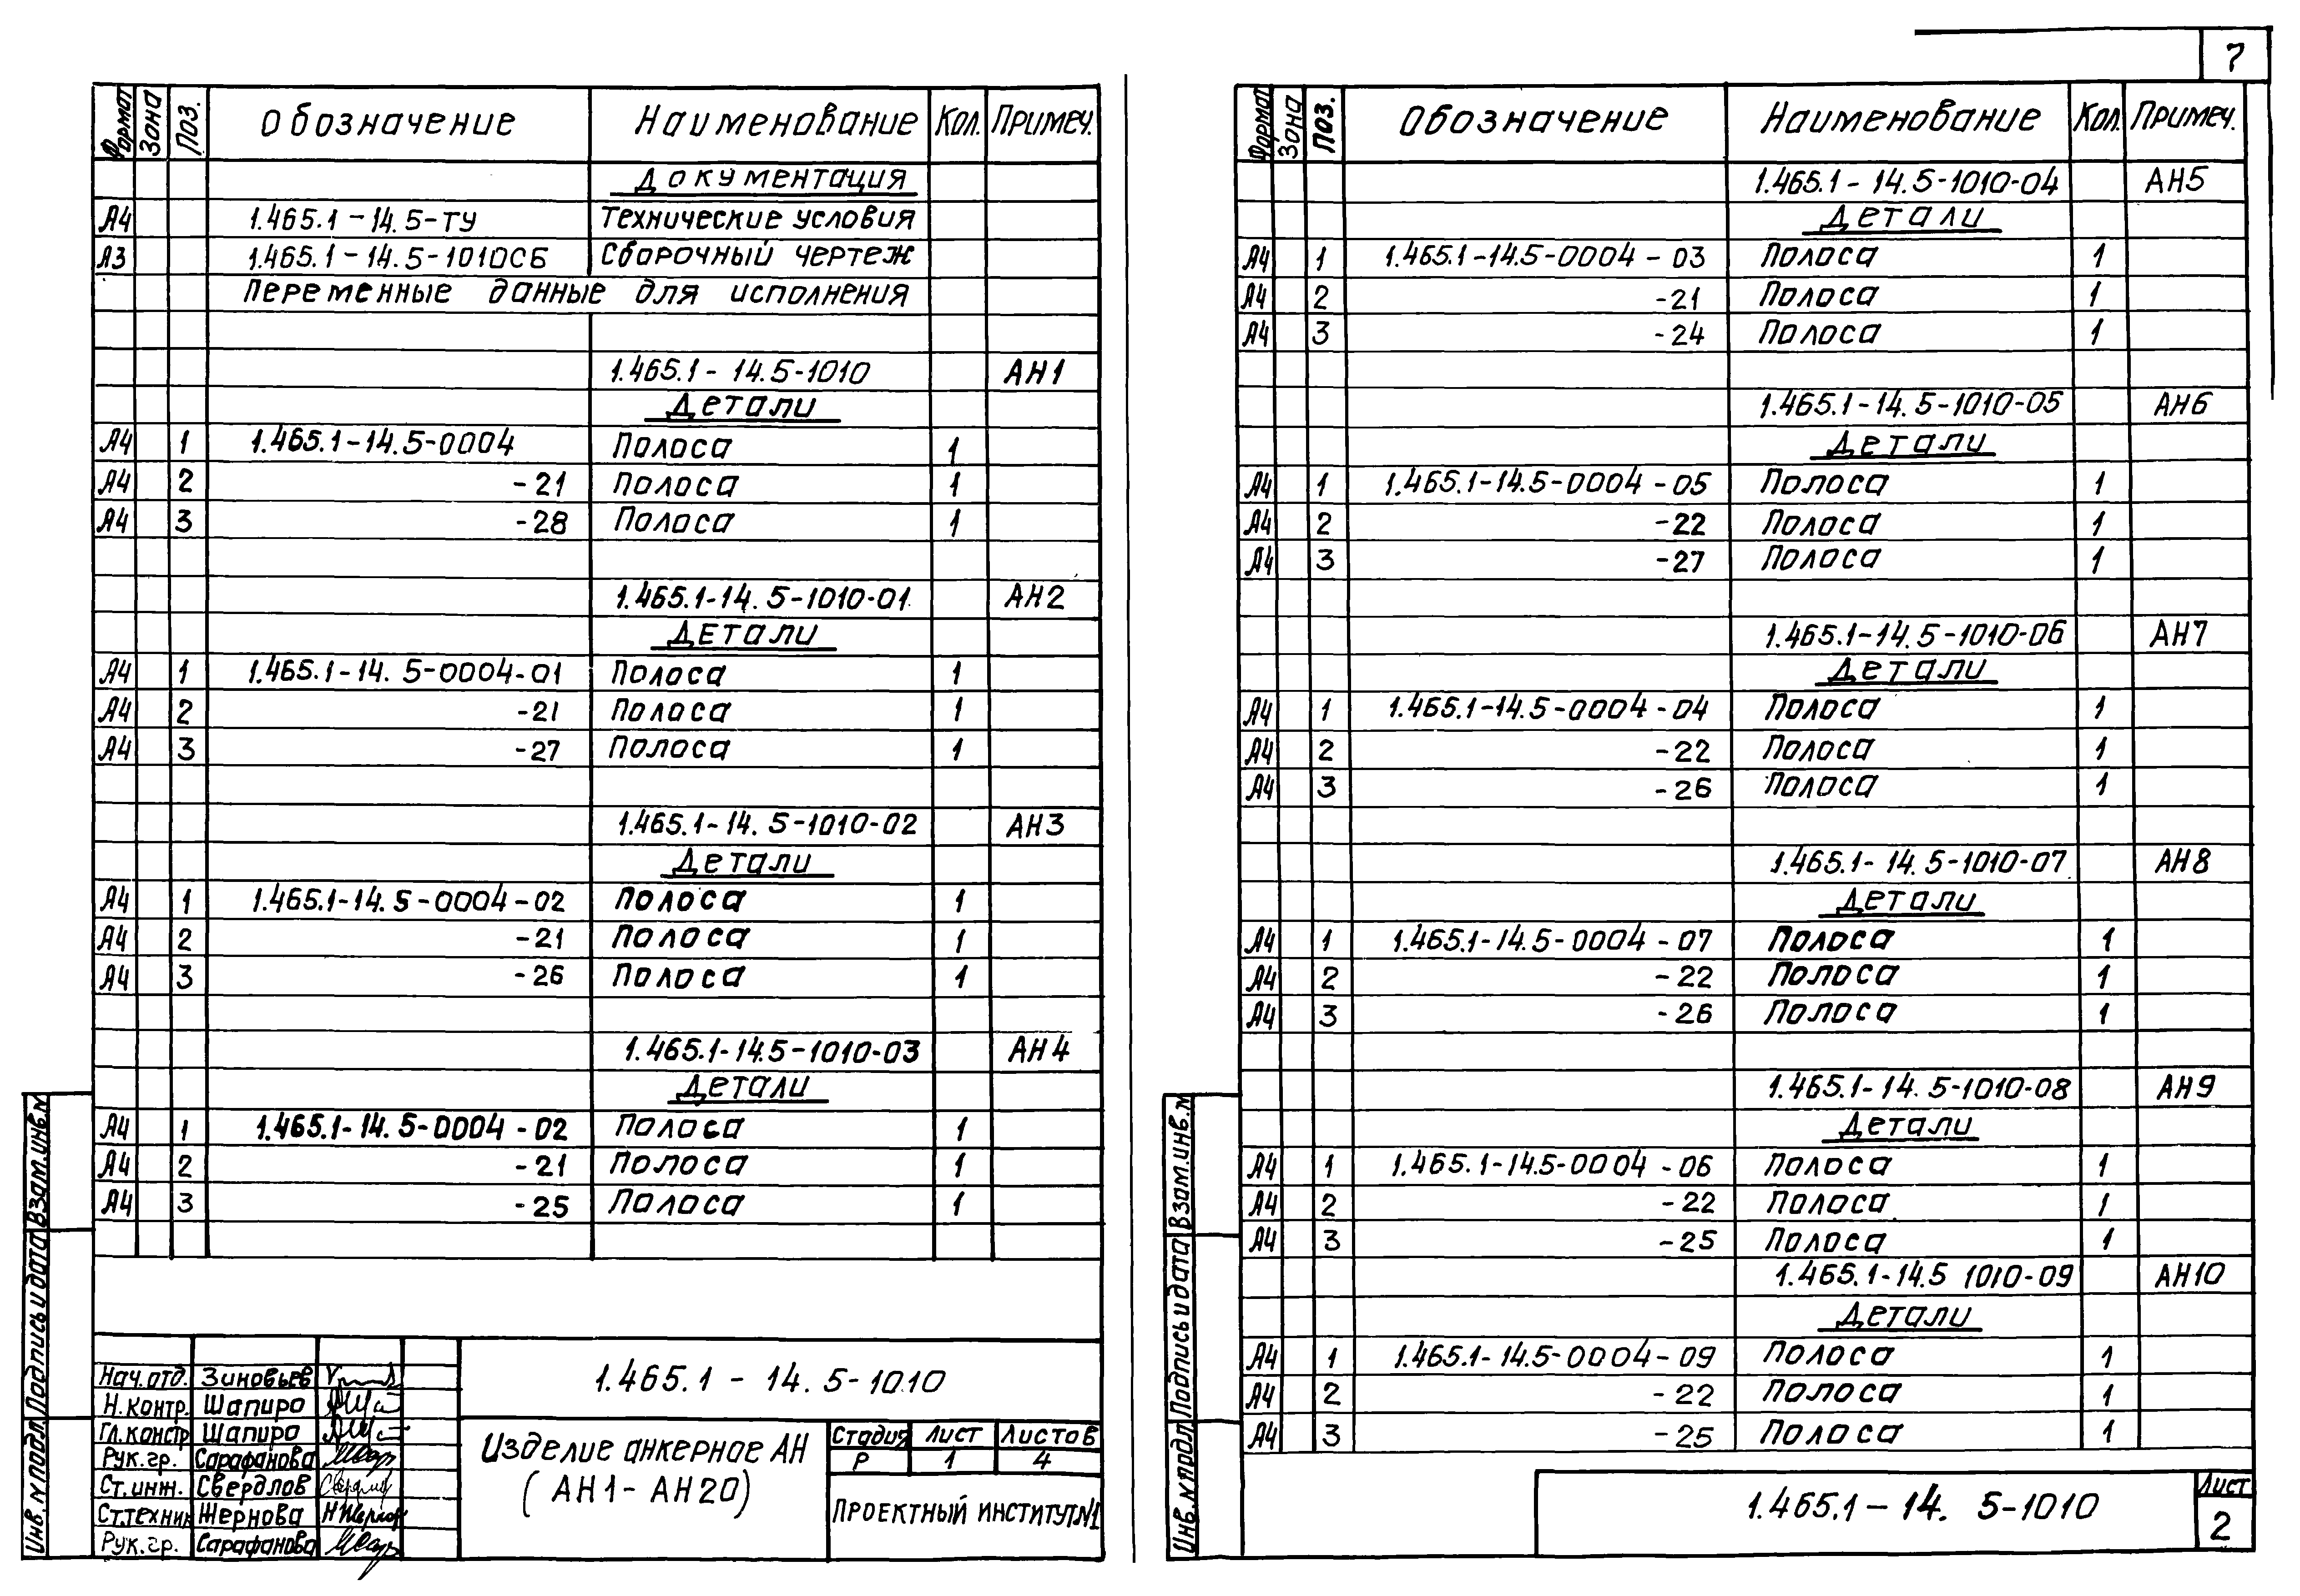 7
Формат Зона Поз. Обозначение Наименование Кол. Примеч.
Документация
А4 1.465.1-14.5-ТУ Технические условия
А3 1.465.1-14.5-1010СБ Сборочный чертеж
Переменные данные для исполнения
1.465.1-14.5-1010 АН1
Детали
А4 1 1.465.1-14.5-0004 Полоса 1
А4 2 -21 Полоса 1
А4 3 -28 Полоса 1
1.465.1-14.5-1010-01 АН2
Детали
А4 1 1.465.1-14.5-0004-01 Полоса 1
А4 2 -21 Полоса 1
А4 3 -27 Полоса 1
1.465.1-14.5-1010-02 АН3
Детали
А4 1 1.465.1-14.5-0004-02 Полоса 1
А4 2 -21 Полоса 1
А4 3 -26 Полоса 1
1.465.1-14.5-1010-03 АН4
Детали
А4 1 1.465.1-14.5-0004-02 Полоса 1
А4 2 -21 Полоса 1
А4 3 -25 Полоса 1
Взам.инв.№
Подпись и дата
Инв.№подл.
Нач.отд. Зиновьев
Н.контр. Шапиро
Гл.констр Шапиро
Рук.гр. Сарафанова
Ст.инж. Свердлов
Ст.техник Жернова
Рук.гр. Сарафанова
1.465.1-14.5-1010
Изделие анкерное АН
(АН1-АН20)
Стадия Лист Листов
Р 1 4
ПРОЕКТНЫЙ ИНСТИТУТ№1
Формат Зона Поз. Обозначение Наименование Кол. Примеч.
1.465.1-14.5-1010-04 АН5
Детали
А4 1 1.465.1-14.5-0004-03 Полоса 1
А4 2 -21 Полоса 1
А4 3 -24 Полоса 1
1.465.1-14.5-1010-05 АН6
Детали
А4 1 1.465.1-14.5-0004-05 Полоса 1
А4 2 -22 Полоса 1
А4 3 -27 Полоса 1
1.465.1-14.5-1010-06 АН7
Детали
А4 1 1.465.1-14.5-0004-04 Полоса 1
А4 2 -22 Полоса 1
А4 3 -26 Полоса 1
1.465.1-14.5-1010-07 АН8
Детали
А4 1 1.465.1-14.5-0004-07 Полоса 1
А4 2 -22 Полоса 1
А4 3 -26 Полоса 1
1.465.1-14.5-1010-08 АН9
Детали
А4 1 1.465.1-14.5-0004-06 Полоса 1
А4 2 -22 Полоса 1
А4 3 -25 Полоса 1
1.465.1-14.5 1010-09 АН10
Детали
А4 1 1.465.1-14.5-0004-09 Полоса 1
А4 2 -22 Полоса 1
А4 3 -25 Полоса 1
Взам.инв.№
Подпись и дата
Инв.№подл
1.465.1-14. 5-1010
Лист
2